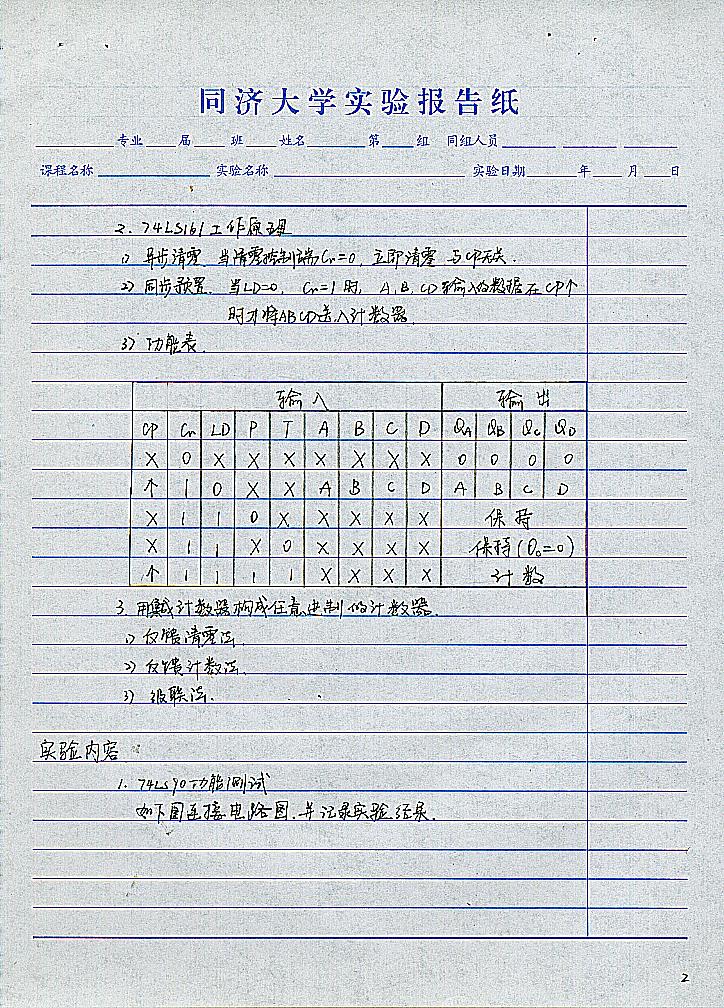 同济大学实验报告纸
专业 届 班 姓名 第 组 同组人员
课程名称 实验名称 实验日期 年 月 日
2. 74LS161工作原理
1) 异步清零 当清零控制端Cr=0, 立即清零 与CP无关.
2) 同步预置. 当LD=0, Cr=1时, A, B, CD输入的数据在CP↑
时才将ABCD送入计数器.
3) 功能表.
输入 输出
CP Cr LD P T A B C D QA QB QC QD
X 0 X X X X X X X 0 0 0 0
↑ 1 0 X X A B C D A B C D
X 1 1 0 X X X X X 保持
X 1 1 X 0 X X X X 保持(Oc=0)
↑ 1 1 1 1 X X X X 计数
3. 用集成计数器构成任意进制的计数器.
1) 反馈清零法.
2) 反馈计数法.
3) 级联法.
实验内容
1. 74LS90功能测试
如下图连接电路图.并记录实验结果.
2